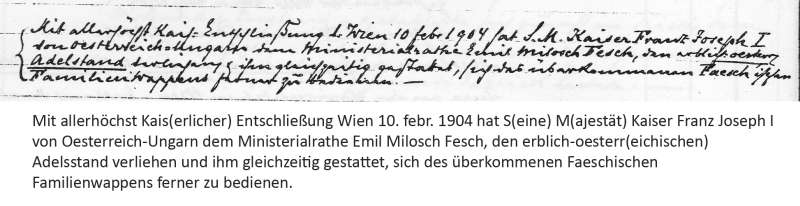 Mit allerhöchst Kais: Entschließung d. Wien 10 febr. 1904 hat S.M. Kaiser Franz Joseph I
von Oesterreich-Ungarn dem Ministerialrathe Emil Milosch Fesch, den erblich-oesterr
Adelstand verliehen & ihm gleichzeitig gestattet, sich des überkommenen Faesch'ischen
Familienwappens ferner zu bedienen. —
Mit allerhöchst Kais(erlicher) Entschließung Wien 10. febr. 1904 hat S(eine) M(ajestät) Kaiser Franz Joseph I
von Oesterreich-Ungarn dem Ministerialrathe Emil Milosch Fesch, den erblich-oesterr(eichischen)
Adelsstand verliehen und ihm gleichzeitig gestattet, sich des überkommenen Faeschischen
Familienwappens ferner zu bedienen.